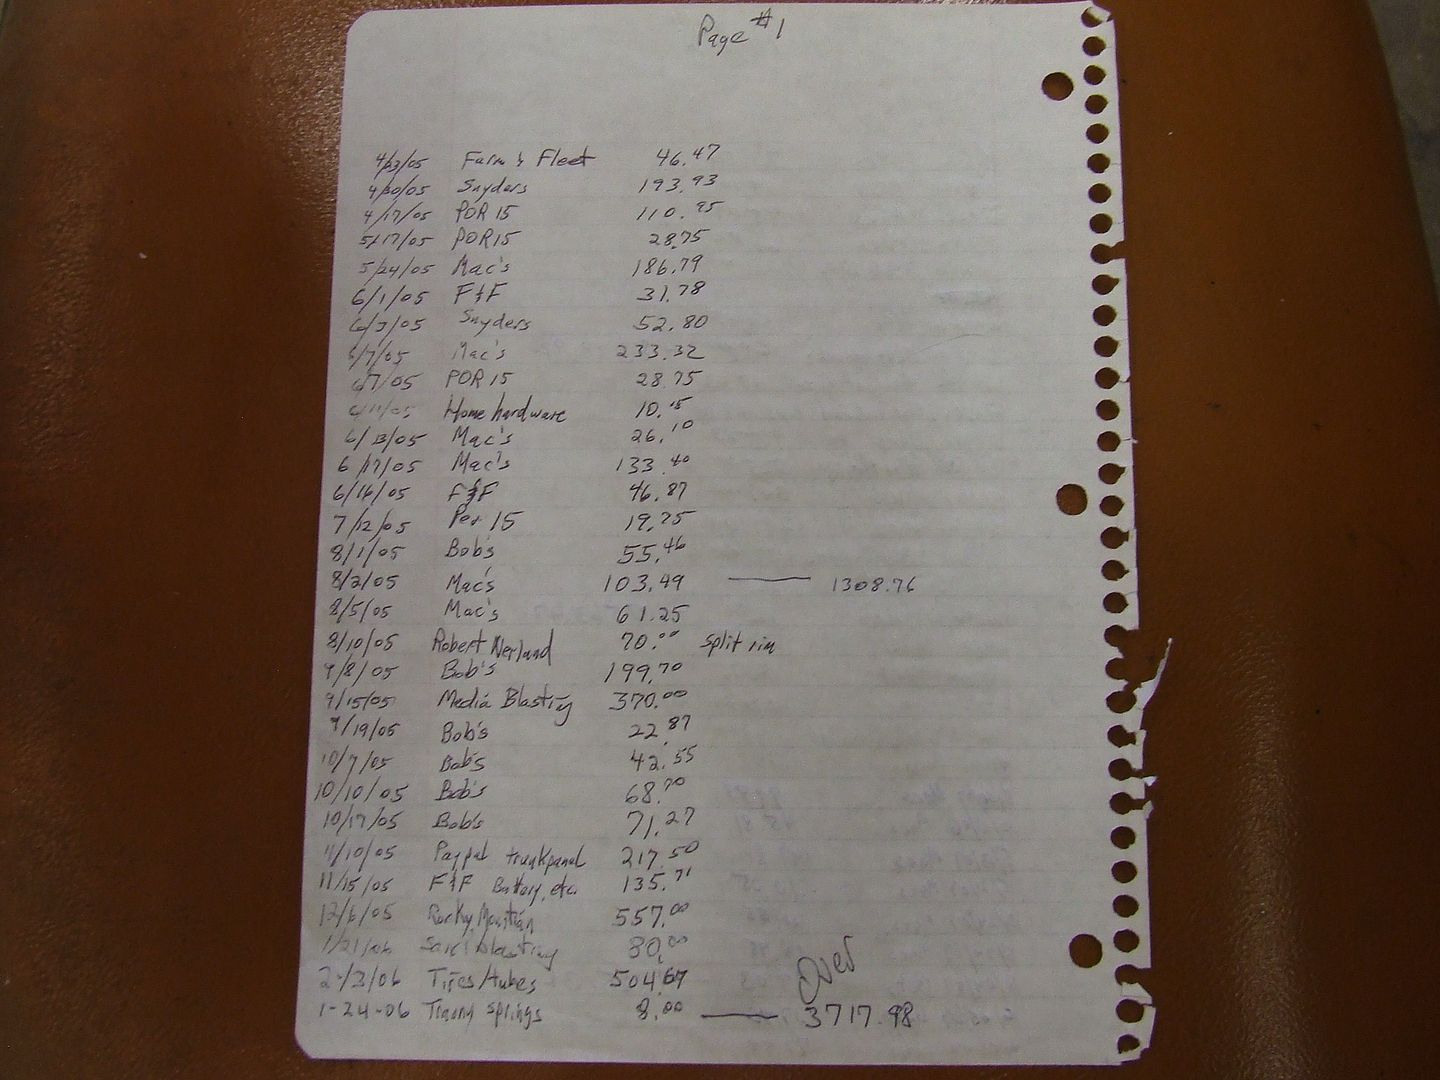 Page #1
4/23/05 Farm & Fleet 46.47
4/30/05 Snyders 193.93
4/17/05 POR 15 110.95
5/17/05 POR15 28.75
5/24/05 Mac's 186.79
6/1/05 F&F 31.78
6/3/05 Snyders 52.80
6/7/05 Mac's 233.32
6/7/05 POR 15 28.75
6/11/05 Home hardware
6/13/05 Mac's 26.10
6/17/05 Mac's 133.40
6/16/05 F&F 46.87
7/12/05 Por 15 19.75
8/1/05 Bob's 55.46
8/2/05 Mac's 103.49 — 1308.76
8/5/05 Mac's 61.25
8/10/05 Robert 70.00 split rim
9/8/05 Bob's 199.70
9/15/05 Media Blasting 370.00
9/19/05 Bob's 22.87
10/7/05 Bob's 42.55
10/10/05 Bob's 68.70
10/17/05 Bob's 71.27
11/10/05 Paypal trunkpanel 217.50
11/15/05 F&F Battery, etc. 135.71
12/6/05 Rocky 557.00
1/21/06 Sand blasting 80.00
2/3/06 Tires/tubes 504.67
Over
1-24-06 springs 8.00 — 3717.98